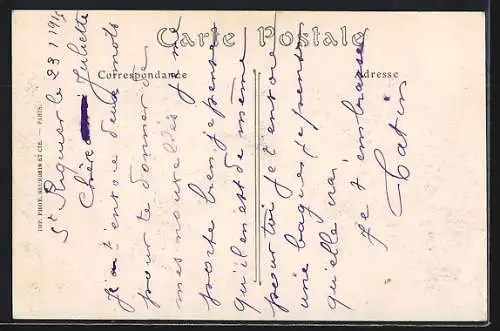 Carte Postale
Correspondance
Adresse
IMP. PHOT. NEURDEIN ET CIE. — PARIS.
St Riquier le 23 1 1915
Chère Juliette
Je t'envoie deux mots
pour te donner de
mes nouvelles je me
porte bien je pense
qu'il en est de même
pour toi je t'envoie
une bague je pense
qu'elle t'ira
Je t'embrasse